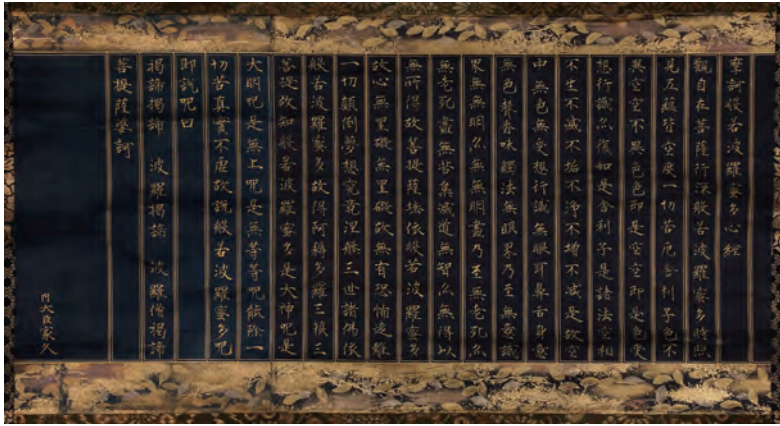 摩訶般若波羅蜜多心經
觀自在菩薩行深般若波羅蜜多時照
見五蘊皆空度一切苦厄舎利子色不
異空空不異色色即是空空即是色受
想行識亦復如是舎利子是諸法空相
不生不滅不垢不淨不増不減是故空
中無色無受想行識無眼耳鼻舌身意
無色聲香味觸法無眼界乃至無意識
界無無明亦無無明盡乃至無老死亦
無老死盡無苦集滅道無智亦無得以
無所得故菩提薩埵依般若波羅蜜多
故心無罣礙無罣礙故無有恐怖遠離
一切顛倒夢想究竟涅槃三世諸佛依
般若波羅蜜多故得阿耨多羅三藐三
菩提故知般若波羅蜜多是大神呪是
大明呪是無上呪是無等等呪能除一
切苦真實不虚故說般若波羅蜜多呪
即說呪曰
揭諦揭諦 波羅揭諦 波羅僧揭諦
菩提薩婆訶
内大臣家久